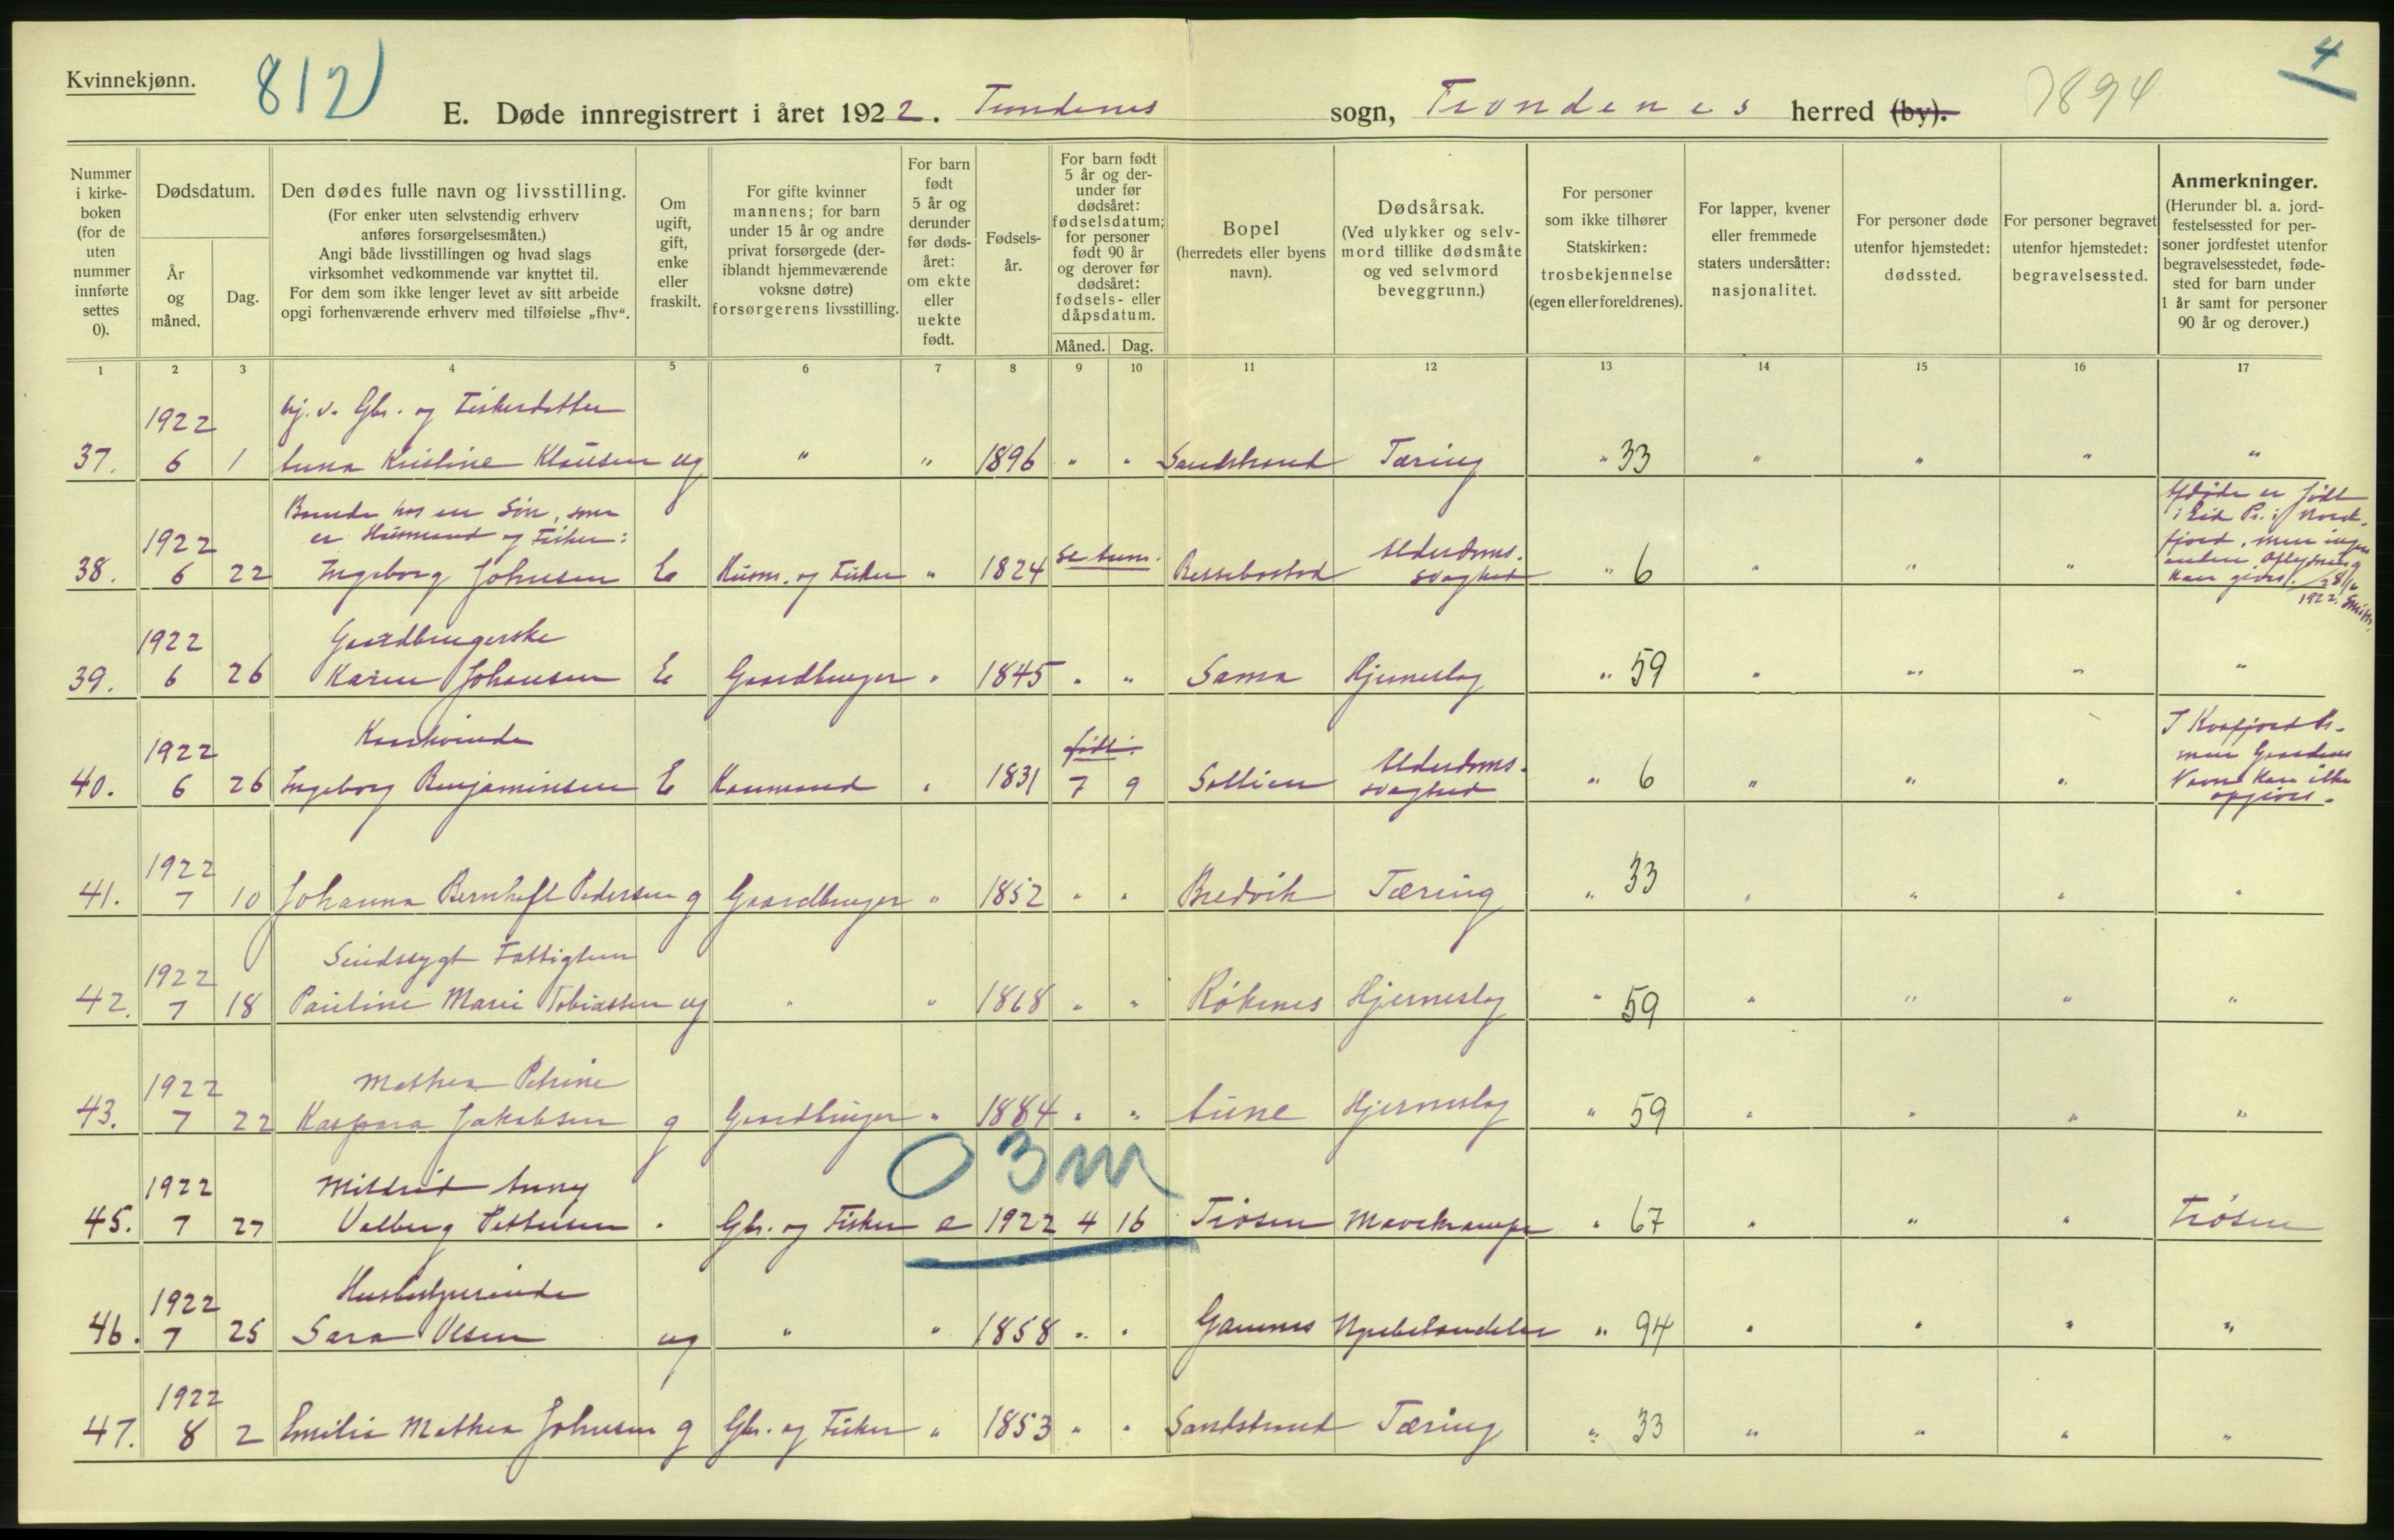 Kvinnekjønn.
812)
4
E. Døde innregistrert i året 1922. Trondenes sogn, Trondenes herred (by).
7894
Nummer i kirkeboken (for de uten nummer innførte settes 0).
Dødsdatum.
År og måned.
Dag.
Den dødes fulle navn og livsstilling.
(For enker uten selvstendig erhverv
anføres forsørgelsesmåten.)
Angi både livsstillingen og hvad slags
virksomhet vedkommende var knyttet til.
For dem som ikke lenger levet av sitt arbeide
opgi forhenværende erhverv med tilføielse „fhv“.
Om ugift, gift, enke eller fraskilt.
For gifte kvinner
mannens; for barn
under 15 år og andre
privat forsørgede (der-
iblandt hjemmeværende
voksne døtre)
forsørgerens livsstilling.
For barn
født
5 år og
derunder
før døds-
året:
om ekte
eller
uekte
født.
Fødsels-
år.
For barn født
5 år og der-
under før
dødsåret:
fødselsdatum;
for personer
født 90 år
og derover før
dødsåret:
fødsels- eller
dåpsdatum.
Måned. Dag.
Bopel
(herredets eller byens
navn).
Dødsårsak.
(Ved ulykker og selv-
mord tillike dødsmåte
og ved selvmord
beveggrunn.)
For personer
som ikke tilhører
Statskirken:
trosbekjennelse
(egen eller foreldrenes).
For lapper, kvener
eller fremmede
staters undersåtter:
nasjonalitet.
For personer døde
utenfor hjemstedet:
dødssted.
For personer begravet
utenfor hjemstedet:
begravelsessted.
Anmerkninger.
(Herunder bl. a. jord-
festelsessted for per-
soner jordfestet utenfor
begravelsesstedet, føde-
sted for barn under
1 år samt for personer
90 år og derover.)
1 2 3 4 5 6 7 8 9 10 11 12 13 14 15 16 17
1922 hj. v. Gbr. og Fiskerdatter
37. 6 1 Anna Kristine Klausen ug " " 1896 " " Sandstrand Tæring " 33 " " " "
Boende hos en Søn, som
1922 er Husmand og Fisker:
38. 6 22 Ingeborg Johnsen E Husm. og Fisker " 1824 se Anm. Ressebostad Alderdoms-
svaghed " 6 " " "
Afdøde er født
i Eid Pr. i Nord-
fjord, men ingen
anden Oplysning
kan gives. 28/11
1922. Smith.
1922 Gaardbrugerske
39. 6 26 Karen Johansen E Gaardbruger " 1845 " " Sama Hjerneslag " 59 " " " "
1922 Kaarkvinde født:
40. 6 26 Ingeborg Benjaminsen E Kaarmand " 1831 7 9 Sollien Alderdoms-
svaghed " 6 " " "
I Kvæfjord Pr.
men Gaardens
Navn kan ikke
opgives.
1922
41. 7 10 Johanna Bernhoft Pedersen g Gaardbruger " 1852 " " Bredvik Tæring " 33 " " " "
1922 Sindssygt Fattiglem
42. 7 18 Pauline Marie Tobiassen ug " " 1868 " " Røkenes Hjerneslag " 59 " " " "
1922 Mathea Petrine
43. 7 22 Kaspara Jakobsen g Gaardbruger " 1884 " " Aune Hjerneslag " 59 " " " "
0 3 m
1922 Mildrid Anny
45. 7 27 Valborg Pettersen " Gbr. og Fisker e 1922 4 16 Trøsen Mavekrampe " 67 " " " Trøsen
1922 Husbestyrerinde
46. 7 25 Sara Olsen ug " " 1858 " " Gausnes Nyrebetændelse " 94 " " " "
1922
47. 8 2 Emilie Mathea Johnsen g Gbr. og Fisker " 1853 " " Sandstrand Tæring " 33 " " " "